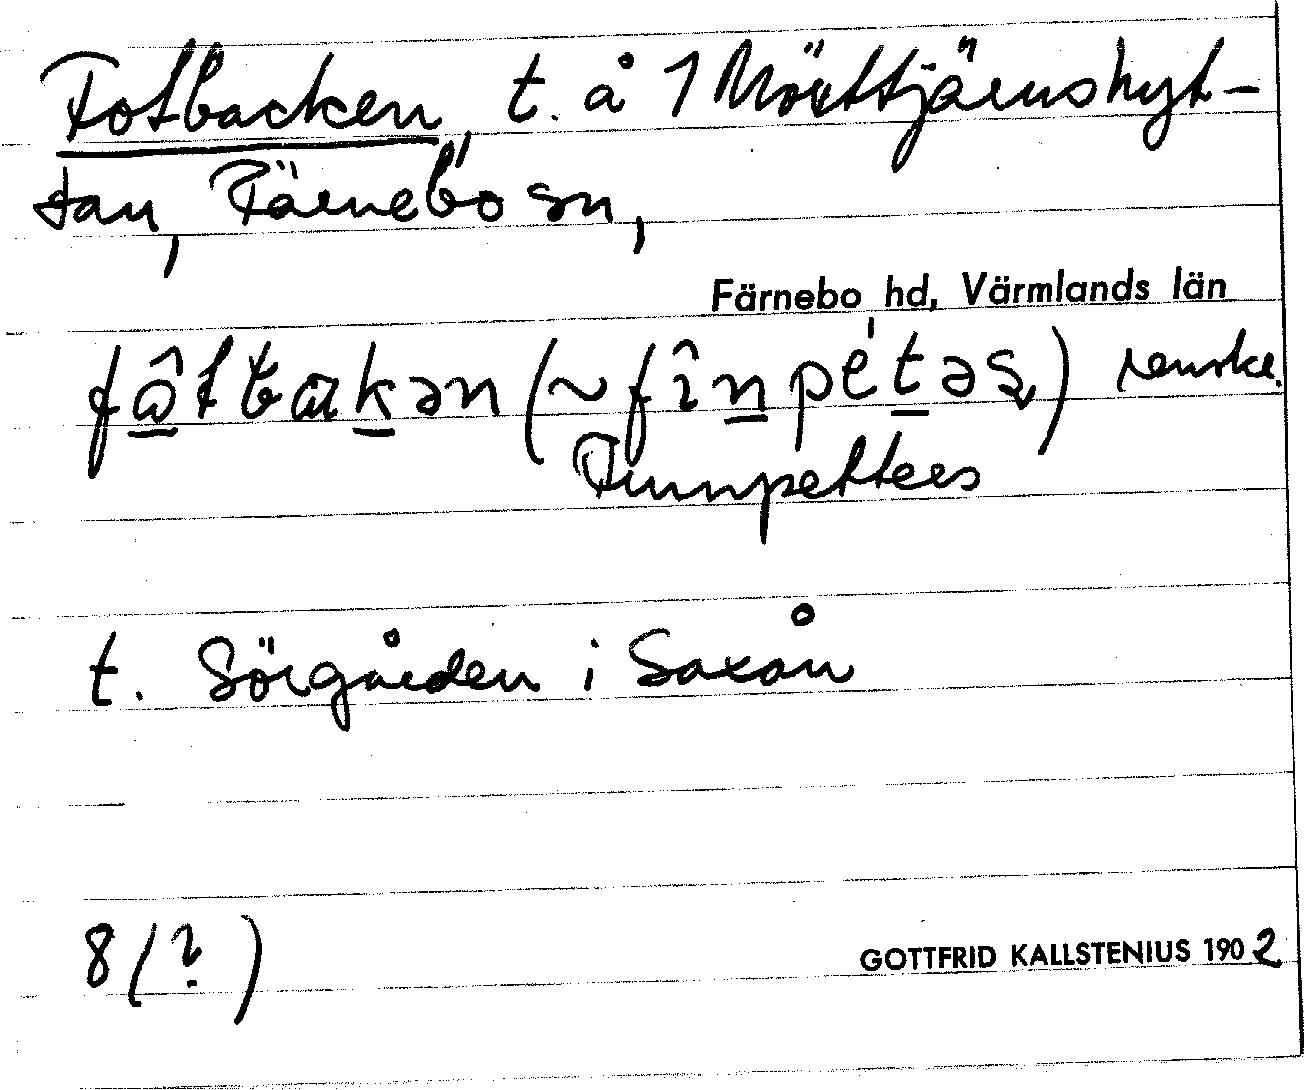 Fotbacken, t. å 1 Mörttjärnshyt-
tan, Färnebo sn,
Färnebo hd, Värmlands län
fâtbakən (~ fînpétəs)
Finnpetters
t. Sörgården i Saxån
8 (?)
GOTTFRID KALLSTENIUS 1902